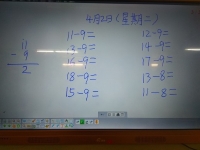 4月2日(星期二)
11-9=
12-9=
13-9=
14-9=
16-9=
17-9=
18-9=
13-8=
15-9=
11-8=
11
- 9
2